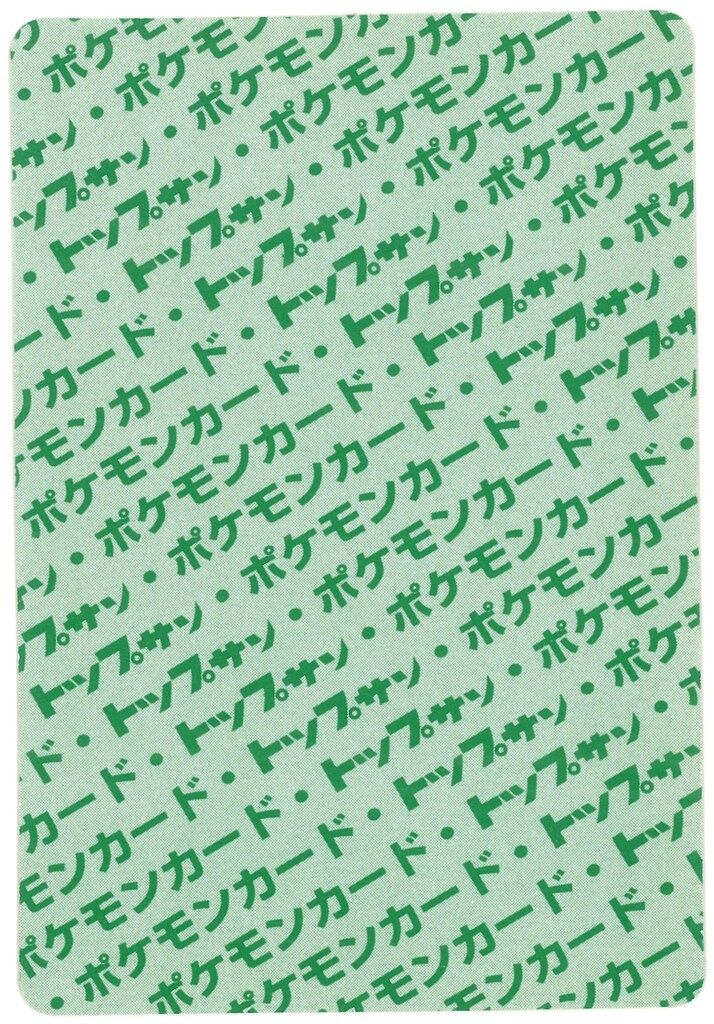 ・ポケモ
サン・ポケモン
ップサン・ポケモンカ
・トップサン・ポケモンカー
ード・トップサン・ポケモンカード
ンカード・トップサン・ポケモンカード
モンカード・トップサン・ポケモンカー
ポケモンカード・トップサン・ポケモン
サン・ポケモンカード・トップサン・ポケ
ップサン・ポケモンカード・トップサン・
トップサン・ポケモンカード・トップサ
ド・トップサン・ポケモンカード・トッ
カード・トップサン・ポケモンカード・
モンカード・トップサン・ポケモンカー
ケモンカード・トップサン・ポケモン
・ポケモンカード・トップサン・ポケ
ポケモンカード・トップサン・ポ
ポケモンカード・トップサ
モンカード・トッ
カード・ト
ード